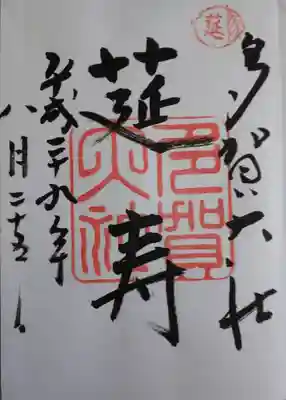 多賀大社
莚寿
多賀
大神
平成二十九年
八月二十五日
莚